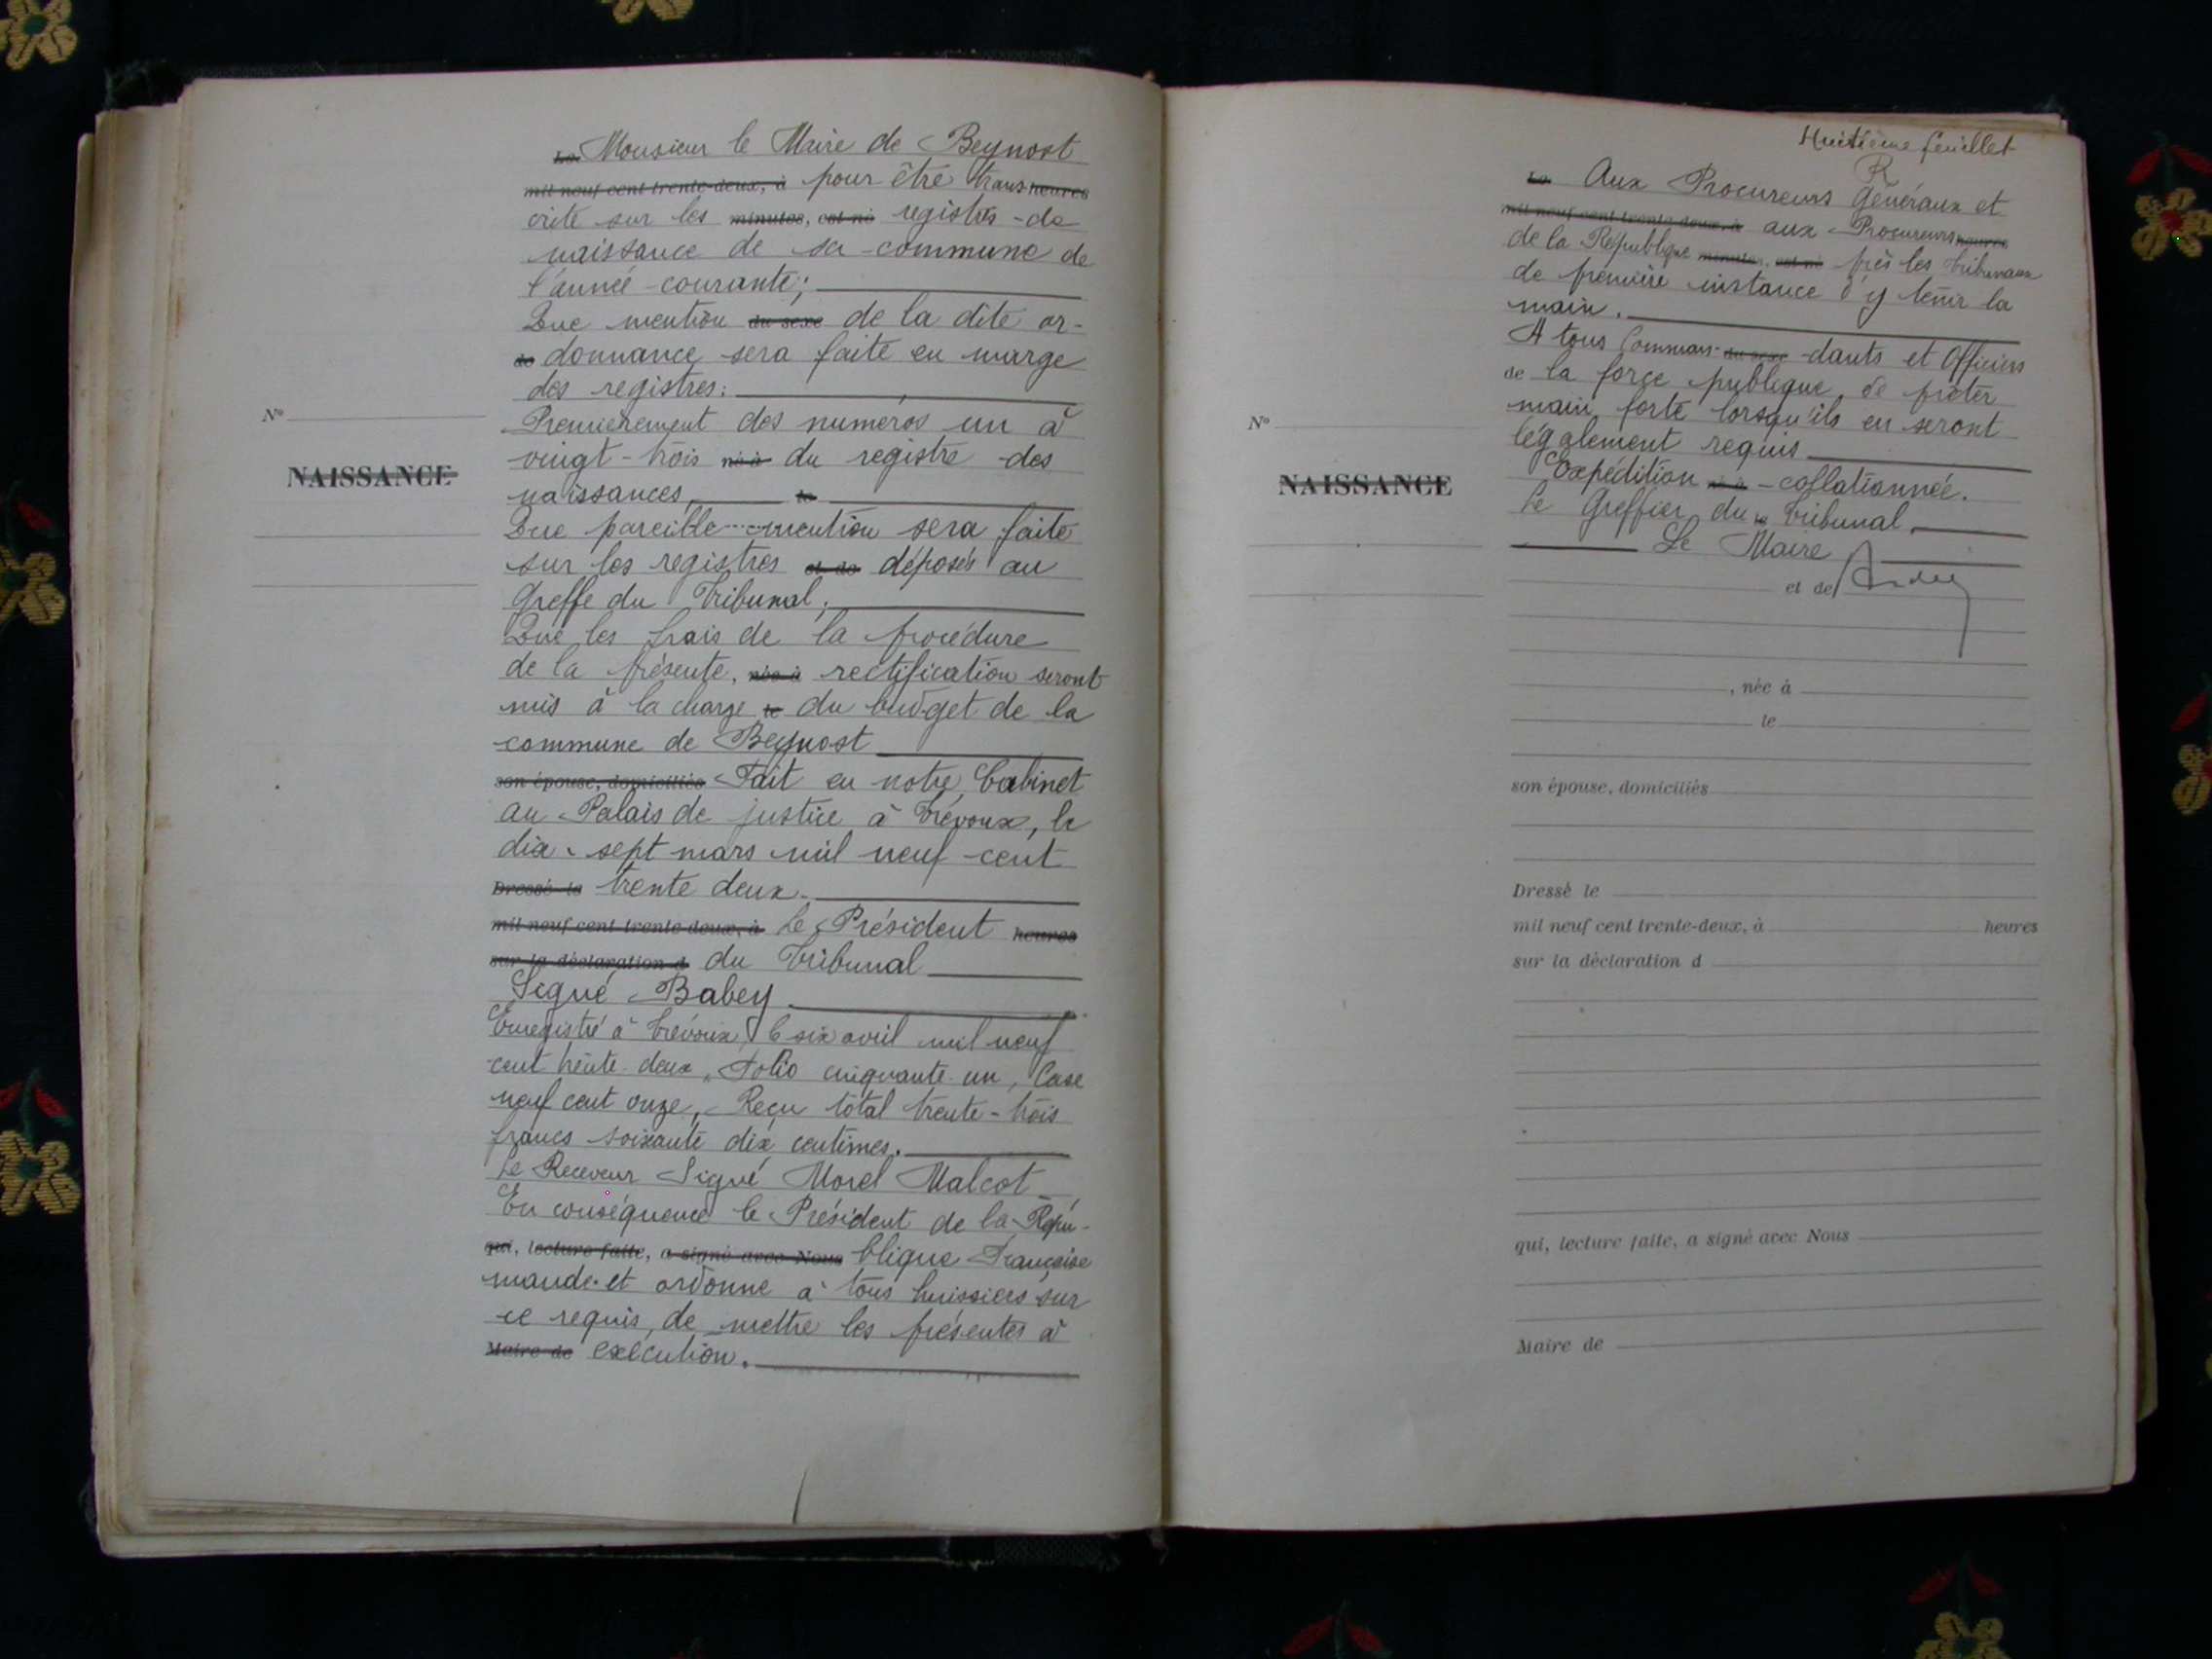 Le Monsieur le Maire de Beynost
mil neuf cent trente-deux, à pour être trans heures
crite sur les minutes, est né registres de
naissance de sa commune de
l'année courante;
Que mention du sexe de la dite or-
de donnance sera faite en marge
des registres:
Premièrement des numéros un à
vingt-trois né à du registre des
naissances, le
Que pareille mention sera faite
sur les registres et de déposés au
Greffe du Tribunal;
Que les frais de la procédure
de la présente, née à rectification seront
mis à la charge le du budget de la
commune de Beynost
son épouse, domiciliés Fait en notre Cabinet
au Palais de justice à Trévoux, le
dix-sept mars mil neuf cent
Dressé le trente deux.
mil neuf cent trente-deux, à Le Président heures
sur la déclaration d du Tribunal
Signé Babey
Enregistré à Trévoux, le six avril mil neuf
cent trente deux, Folio cinquante un, Case
neuf cent onze, Reçu total trente-trois
francs soixante dix centimes.
Le Receveur Signé Morel Malcot
En conséquence le Président de la Répu-
qui, lecture faite, a signé avec Nous blique Française
mande et ordonne à tous huissiers sur
ce requis, de mettre les présentes à
Maire de exécution.
N°
NAISSANCE
Huitième feuillet
R
Le Aux Procureurs Généraux et
mil neuf cent trente-deux, à aux Procureurs heures
de la République minutes, est né près les tribunaux
de première instance d'y tenir la
main.
A tous Comman- du sexe dants et Officiers
de la force publique de prêter
main forte lorsqu'ils en seront
légalement requis
Expédition né à collationnée.
Le Greffier du le Tribunal
Le Maire
et de
, née à
le
son épouse, domiciliés
Dressé le
mil neuf cent trente-deux, à heures
sur la déclaration d
qui, lecture faite, a signé avec Nous
Maire de
N°
NAISSANCE